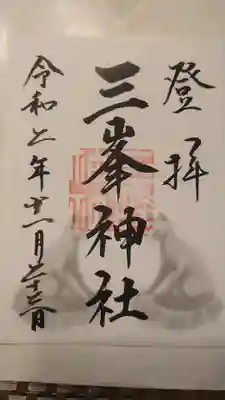 登拝
三峯神社
令和元年十一月二十三日